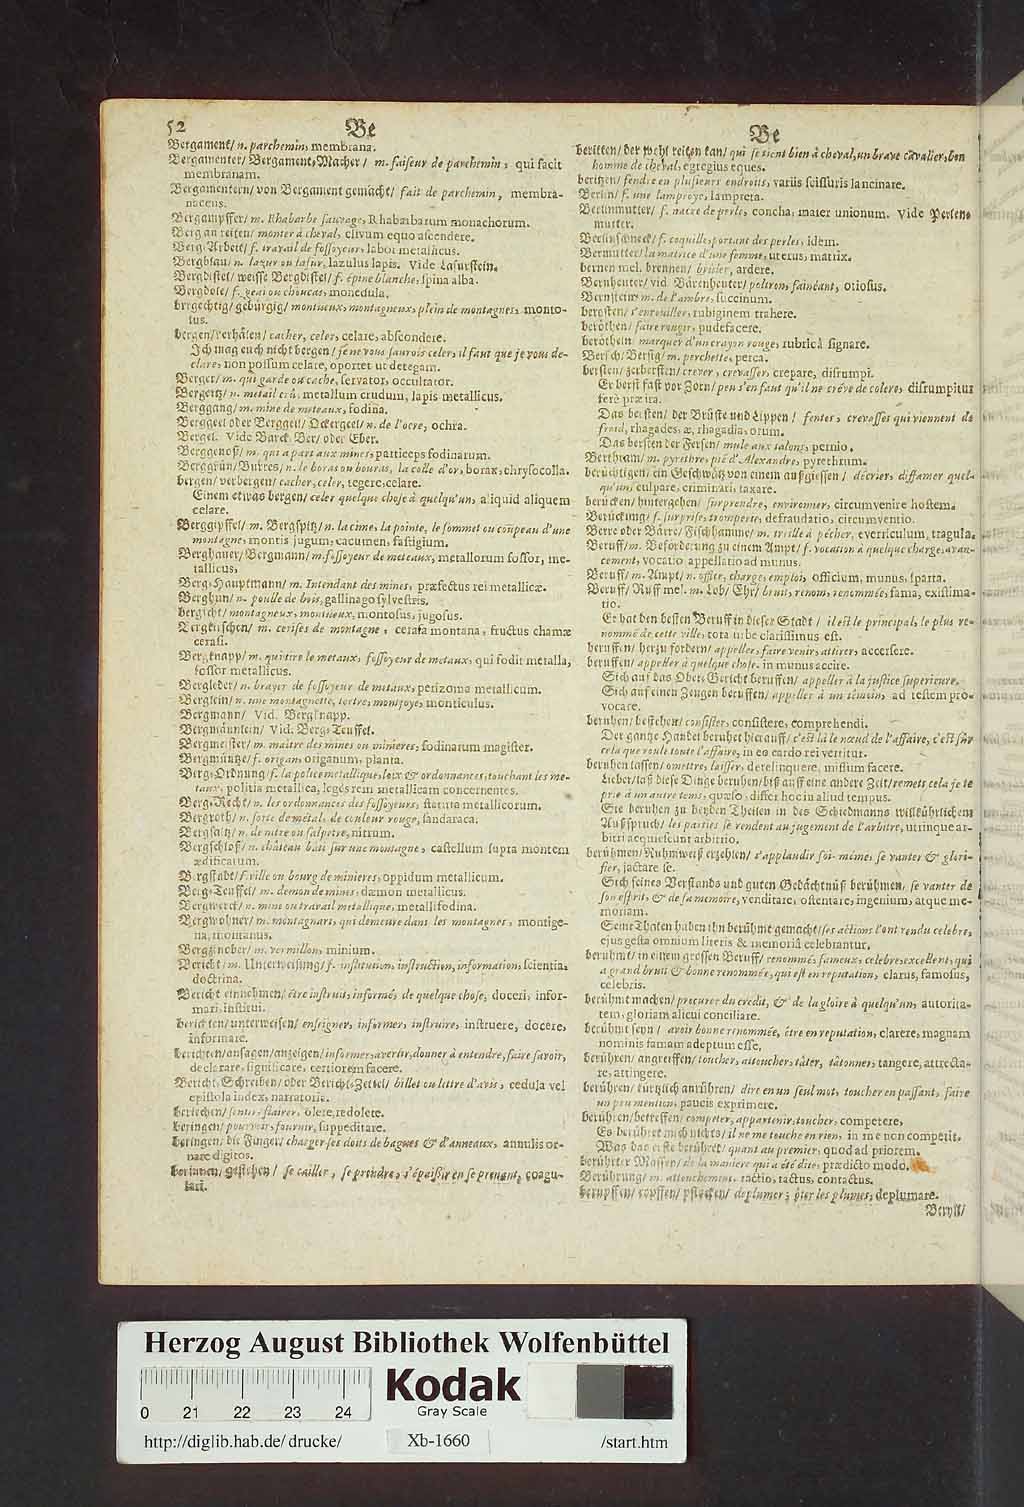 52 Be
Bergament/ n. parchemin, membrana.
Bergamenter/ Bergament-Macher/ m. faiseur de parchemin, qui facit
membranam.
Bergamentern/ von Bergament gemacht/ fait de parchemin, membra-
naceus.
Bergampffer/ m. Rhabarbe sauvage, Rhabarbarum monachorum.
Berg an reiten/ monter à cheval, clivum equo ascendere.
Berg-Arbeit/ f. travail de fossoyeur, labor metallicus.
Bergblau/ n. lazur ou lasur, lazulus lapis. Vide Lasurstein.
Bergdistel/ weisse Bergdistel/ f. épine blanche, spina alba.
Bergdole/ f. geai ou choucas, monedula.
bergechtig/ gebürgig/ montueux, montagneux, plein de montagnes, monto-
sus.
bergen/ verhälen/ cacher, celer, celare, abscondere.
Ich mag euch nicht bergen/ je ne vous saurois celer, il faut que je vous de-
clare, non possum celare, oportet ut detegam.
Berger/ m. qui garde ou cache, servator, occultator.
Bergertz/ n. metail crû, metallum crudum, lapis metallicus.
Berggang/ m. mine de metaux, fodina.
Berggeel oder Berggeil/ Ockergeel/ n. de l'ocre, ochra.
Bergel. Vide Barck, Ber/ oder Eber.
Berggenoß/ m. qui a part aux mines, particeps fodinarum.
Berggrün/ Burres/ n. le boras ou bouras, la colle d'or, borax, chrysocolla.
bergen/ verbergen/ cacher, celer, tegere, celare.
Einem etwas bergen/ celer quelque chose à quelqu'un, aliquid aliquem
celare.
Berggipffel/ m. Bergspitz/ n. la cime, la pointe, le sommet ou coupeau d'une
montagne, montis jugum, cacumen, fastigium.
Berghauer/ Bergmann/ m. fossoyeur de metaux, metallorum fossor, me-
tallicus.
Berg-Hauptmann/ m. Intendant des mines, præfectus rei metallicæ.
Berghun/ n. poulle de bois, gallinago sylvestris.
bergicht/ montagneux, montueux, montosus, jugosus.
Bergkirschen/ m. cerises de montagne, cerasa montana, fructus chamæ
cerasi.
Bergknapp/ m. qui tire le metaux, fossoyeur de metaux, qui fodit metalla,
fossor metallicus.
Bergleder/ n. brayer de fossoyeur de metaux, perizoma metallicum.
Berglein/ n. une montagnette, tertre, montjoye, monticulus.
Bergmann/ Vid. Bergknapp.
Bergmännlein/ Vid. Berg-Teuffel.
Bergmeister/ m. maitre des mines ou minieres, fodinarum magister.
Bergmüntze/ f. origan, origanum, planta.
Berg-Ordnung/ f. la police metallique, loix & ordonnances, touchant les me-
taux, politia metallica, leges rem metallicam concernentes.
Berg-Recht/ n. les ordonnances des fossoyeurs, statuta metallicorum.
Bergroth/ n. sorte de métal, de couleur rouge, sandaraca.
Bergsaltz/ n. de nitre ou salpetre, nitrum.
Bergschloß/ n. château bati sur une montagne, castellum supra montem
ædificatum.
Bergstadt/ f. ville ou bourg de minieres, oppidum metallicum.
Berg-Teuffel/ m. demon de mines, dæmon metallicus.
Bergwerck/ n. mine ou travail metallique, metallifodina.
Bergwohner/ m. montagnart, qui demeure dans les montagnes, montige-
na, montanus.
Bergzinober/ m. vermillon, minium.
Bericht/ m. Unterweisung/ f. institution, instruction, information, scientia,
doctrina.
Bericht einnehmen/ être instruit, informé, de quelque chose, doceri, infor-
mari, institui.
berichten/ unterweisen/ enseigner, informer, instruire, instruere, docere,
informare.
berichten/ ansagen/ anzeigen/ informer, avertir, donner à entendre, faire savoir,
declarare, significare, certiorem facere.
Bericht-Schreiben/ oder Bericht-Zettel/ billet ou lettre d'avis, cedula vel
epistola index, narratoria.
beriechen/ sentir, flairer, olere, redolere.
beringen/ pourvoir, fournir, suppeditare.
beringen/ die Finger/ charger ses doits de bagues & d'anneaux, annulis or-
nare digitos.
berinnen/ gestehen/ se cailler, se prendre, s'épaissir en se prenant, coagu-
lari.
Be
beritten/ der wohl reiten kan/ qui se tient bien à cheval, un brave cavalier, bon
homme de cheval, egregius eques.
beritzen/ fendre en plusieurs endroits, variis scissuris lancinare.
Berlin/ f. une lamproye, lampreta.
Berlinmutter/ f. nacre de perle, concha, mater unionum. Vide Perlen-
mutter.
Berlinschneck/ f. coquille, portant des perles, idem.
Bermutter/ la matrice d'une femme, uterus, matrix.
bernen mel. brennen/ bruler, ardere.
Bernheuter/ vid. Bärenheuter/ poltron, fainéant, otiosus.
Bernstein/ m. de l'ambre, succinum.
berosten/ s'enrouiller, rubiginem trahere.
beröthen/ faire rougir, pudefacere.
berötheln/ marquer d'un crayon rouge, rubricâ signare.
Bersch/ Bersig/ m. perchette, perca.
bersten/ zerbersten/ crever, crevasser, crepare, disrumpi.
Er berst fast vor Zorn/ peu s'en faut qu'il ne créve de colere, disrumpitur
fere præ ira.
Das bersten/ der Brüste und Lippen/ fentes, crevasses qui viennent de
froid, rhagades, æ, rhagadia, orum.
Das bersten der Fersen/ mule aux talons, pernio.
Bertham/ m. pyrethre, pié d'Alexandre, pyrethrum.
berüchtigen/ ein Geschwätz von einem außgiessen/ décrier, diffamer quel-
qu'un, culpare, criminari, taxare.
berücken/ hintergehen/ surprendre, environner, circumvenire hostem.
Berückung/ f. surprise, tromperie, defraudatio, circumventio.
Berre oder Bärre/ Fischhamme/ m. treille à pécher, everriculum, tragula.
Beruff/ m. Beförderung zu einem Ampt/ f. vocation à quelque charge, avan-
cement, vocatio appellatio ad munus.
Beruff/ m. Ampt/ n. office, charge, emploi, officium, munus, sparta.
Beruff/ Ruff mel. m. Lob/ Ehr/ bruit, renom, renommée, fama, existima-
tio.
Er hat den besten Beruff in dieser Stadt/ il est le principal, le plus re-
nommé de cette ville, tota urbe clarissimus est.
beruffen/ herzu fordern/ appeller, faire venir, attirer, accersere.
beruffen/ appeller à quelque chose, in munus accire.
Sich auf das Ober-Gericht beruffen/ appeller à la justice superieure.
Sich auf einen Zeugen beruffen/ appeller à un témoin, ad testem pro-
vocare.
beruhen/ bestehen/ consister, consistere, comprehendi.
Der gantze Handel beruhet hierauff/ c'est là le nœud de l'affaire, c'est sur
cela que roule toute l'affaire, in eo cardo rei vertitur.
beruhen lassen/ omettre, laisser, derelinquere, missum facere.
Lieber/ laß diese Dinge beruhen/ biß auff eine andere Zeit/ remets cela je te
prie à un autre tems, quæso, differ hoc in aliud tempus.
Sie beruhen zu beyden Theilen in des Schiedmanns willkührlichen
Außspruch/ les parties se rendent au jugement de l'arbitre, utrinque ar-
bitri acquiescunt arbitrio.
berühmen/ Ruhmweiß erzehlen/ s'applaudir soi-même, se vanter & glori-
fier, jactare se.
Sich seines Verstands und guten Gedächtnüß berühmen, se vanter de
son esprit, & de sa memoire, venditare, ostentare, ingenium, atque me-
moriam.
Seine Thaten haben ihn berühmt gemacht/ ses actions l'ont rendu celebre,
ejus gesta omnium literis & memoriâ celebrantur.
berühmt/ in einem grossen Beruff/ renommé, fameux, celebre, excellent, qui
a grand bruit & bonne renommée, qui est en reputation, clarus, famosus,
celebris.
berühmt machen/ procurer du credit, & de la gloire à quelqu'un, autorita-
tem, gloriam alicui conciliare.
berühmt seyn/ avoir bonne renommée, être en reputation, clarere, magnam
nominis famam adeptum esse,
berühren/ angreiffen/ toucher, attoucher, tâter, tâtonner, tangere, attrecta-
re, attingere.
berühren/ kürtzlich anrühren/ dire en un seul mot, toucher en passant, faire
un peu mention, paucis exprimere.
berühren/ betreffen/ competer, appartenir, toucher, competere,
Es berühret mich nichts/ il ne me touche en rien, in me non competit.
Was das erste berühret/ quant au premier, quod ad priorem.
berührter Massen/ de la maniere qui a été dite, prædicto modo.
Berührung/ m. attouchement, tactio, tactus, contactus.
berupffen/ ropffen/ pflücken/ deplumer, ôter les plumes, deplumare.
Beryll/
Herzog August Bibliothek Wolfenbüttel
0 21 22 23 24
Kodak
Gray Scale
http://diglib.hab.de/drucke/ Xb-1660 /start.htm